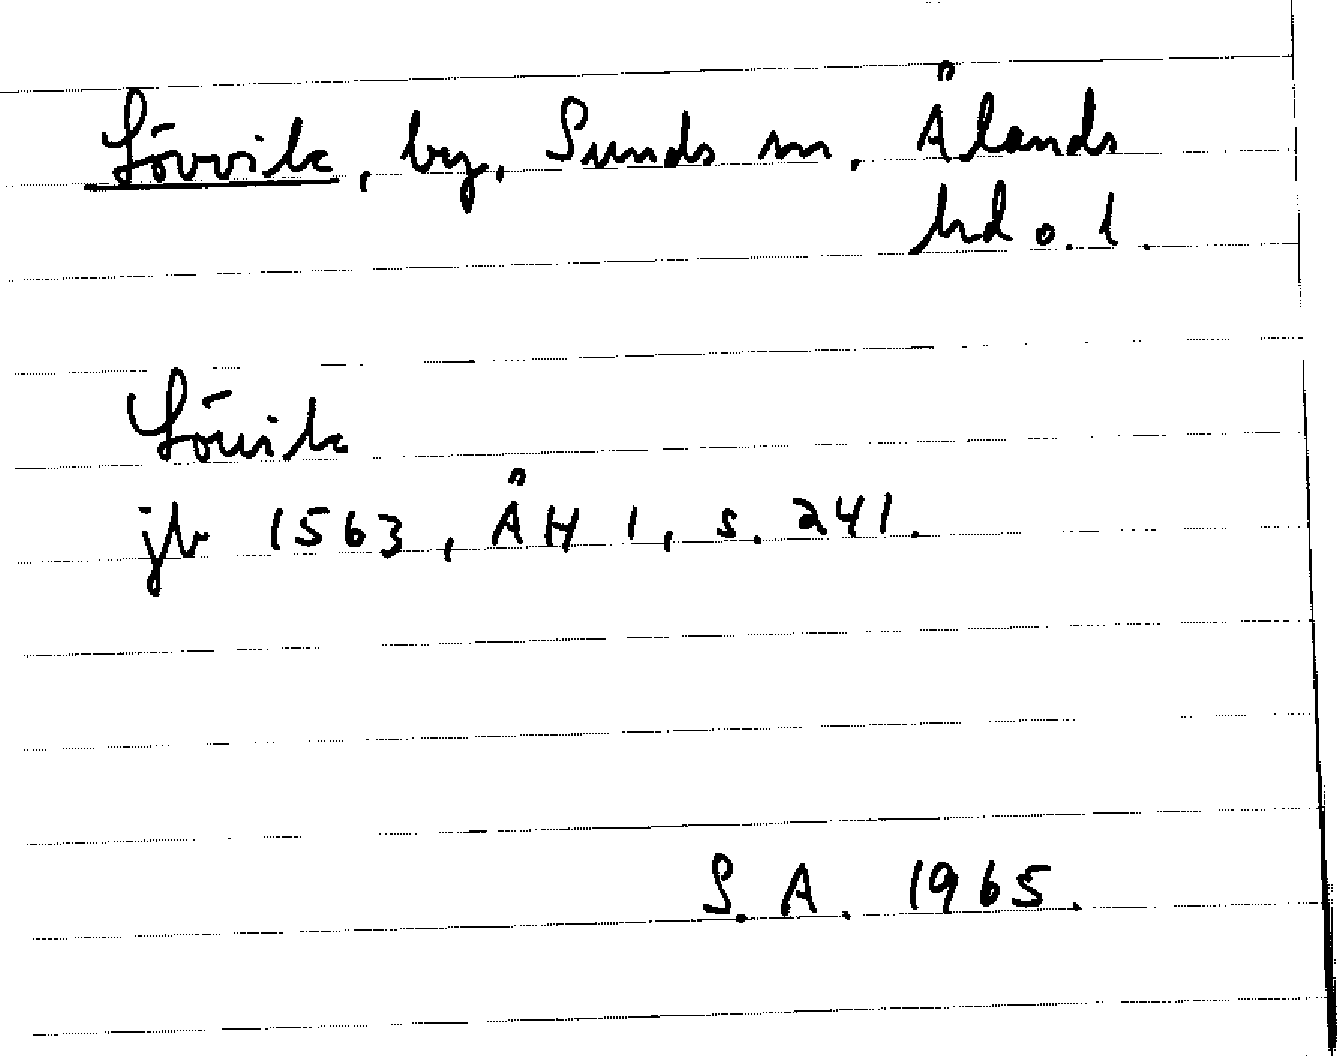 Lövvik, by, Sunds sn, Ålands
hd o. l.
Löuik
jb 1563, ÅH 1, s. 241.
S. A. 1965.